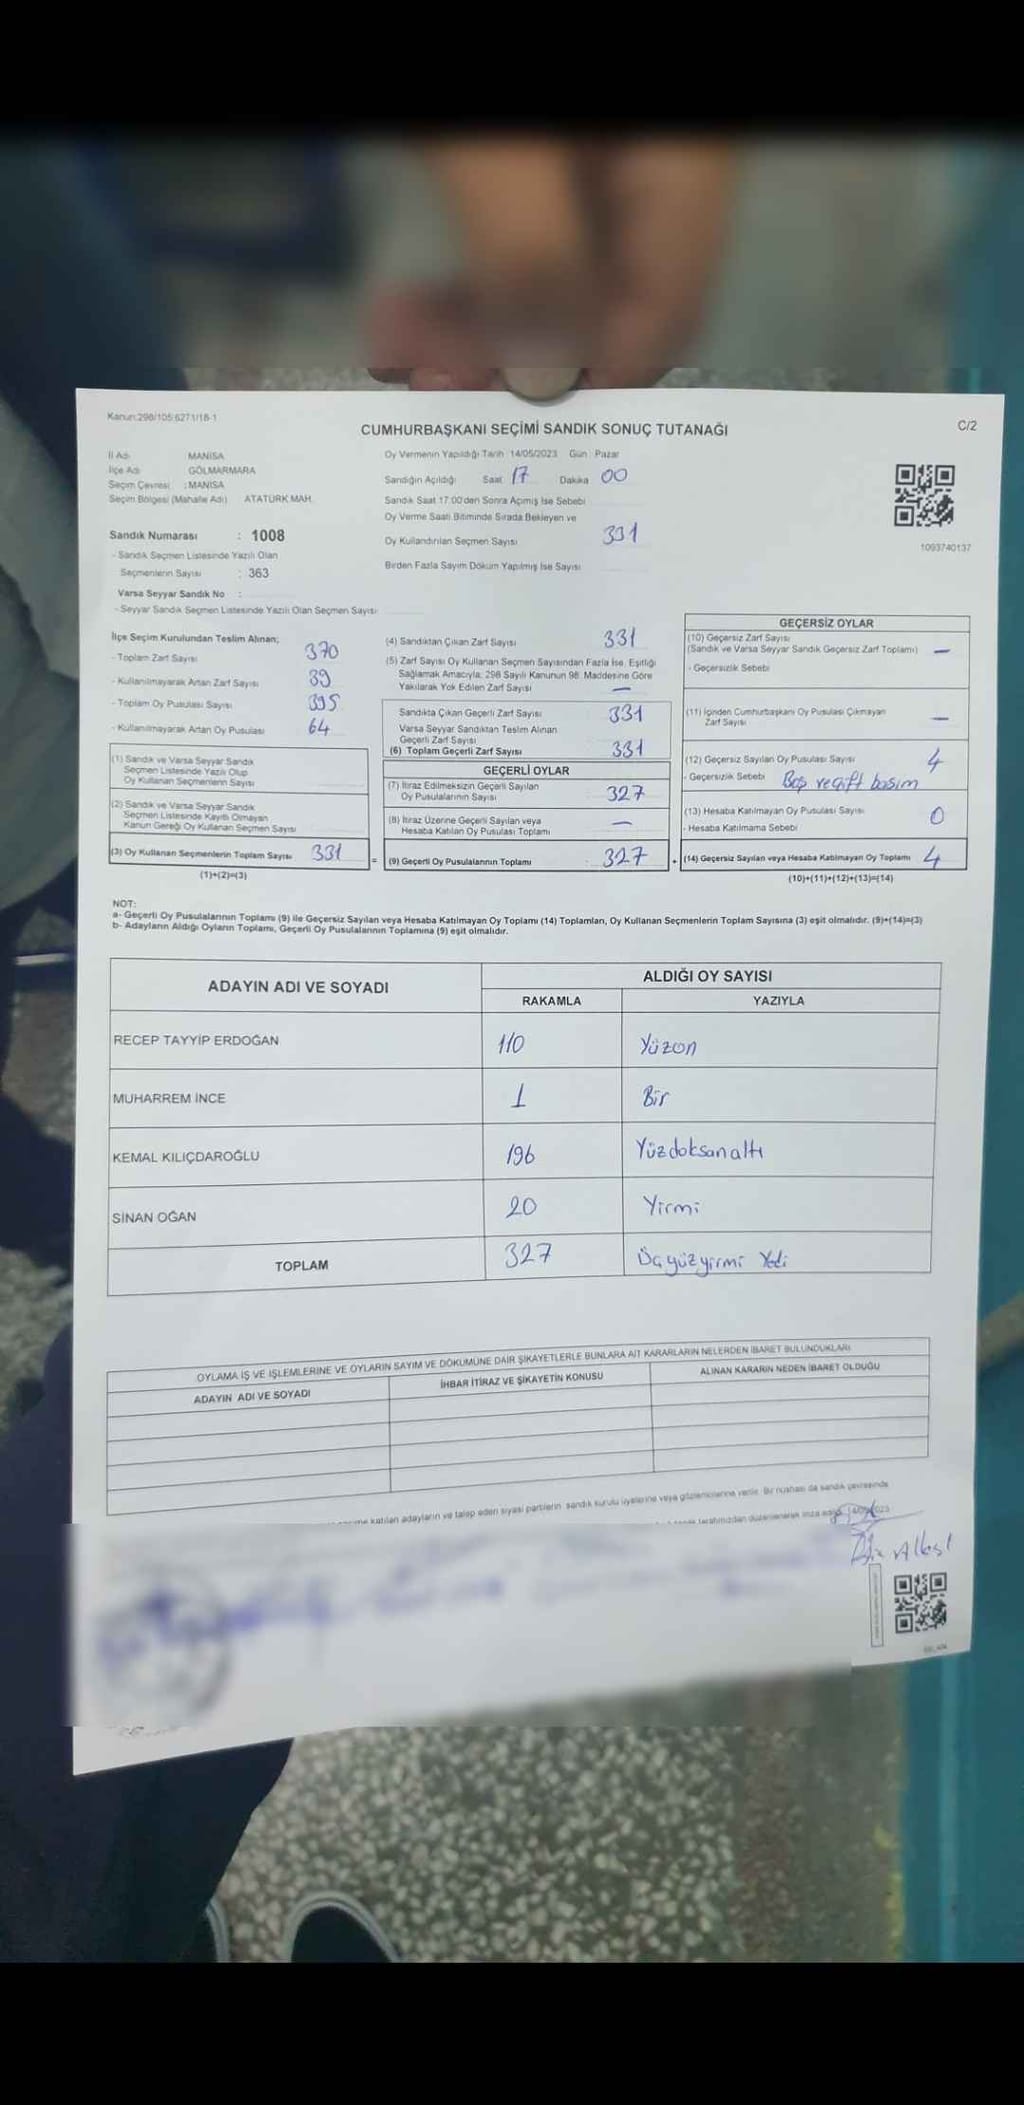 Kanun:298/105 6271/18-1
C/2
CUMHURBAŞKANI SEÇİMİ SANDIK SONUÇ TUTANAĞI
İl Adı MANİSA
İlçe Adı GÖLMARMARA
Seçim Çevresi : MANİSA
Seçim Bölgesi (Mahalle Adı) ATATÜRK MAH.
Sandık Numarası : 1008
- Sandık Seçmen Listesinde Yazılı Olan
Seçmenlerin Sayısı : 363
Varsa Seyyar Sandık No :
- Seyyar Sandık Seçmen Listesinde Yazılı Olan Seçmen Sayısı
Oy Vermenin Yapıldığı Tarih 14/05/2023 Gün Pazar
Sandığın Açıldığı Saat 17 Dakika 00
Sandık Saat 17.00'den Sonra Açımış İse Sebebi
Oy Verme Saati Bitiminde Sırada Bekleyen ve
Oy Kullandırılan Seçmen Sayısı 331
Birden Fazla Sayım Döküm Yapılmış İse Sayısı
1093740137
İlçe Seçim Kurulundan Teslim Alınan;
- Toplam Zarf Sayısı 370
- Kullanılmayarak Artan Zarf Sayısı 39
- Toplam Oy Pusulası Sayısı 395
- Kullanılmayarak Artan Oy Pusulası 64
(1) Sandık ve Varsa Seyyar Sandık
Seçmen Listesinde Yazılı Olup
Oy Kullanan Seçmenlerin Sayısı
(2) Sandık ve Varsa Seyyar Sandık
Seçmen Listesinde Kayıtlı Olmayan
Kanun Gereği Oy Kullanan Seçmen Sayısı
(3) Oy Kullanan Seçmenlerin Toplam Sayısı 331 =
(1)+(2)=(3)
(4) Sandıktan Çıkan Zarf Sayısı 331
(5) Zarf Sayısı Oy Kullanan Seçmen Sayısından Fazla İse, Eşitliği
Sağlamak Amacıyla, 298 Sayılı Kanunun 98. Maddesine Göre
Yakılarak Yok Edilen Zarf Sayısı —
Sandıkta Çıkan Geçerli Zarf Sayısı 331
Varsa Seyyar Sandıktan Teslim Alınan
Geçerli Zarf Sayısı
(6) Toplam Geçerli Zarf Sayısı 331
GEÇERLİ OYLAR
(7) İtiraz Edilmeksizin Geçerli Sayılan
Oy Pusulalarının Sayısı 327
(8) İtiraz Üzerine Geçerli Sayılan veya
Hesaba Katılan Oy Pusulası Toplamı —
(9) Geçerli Oy Pusulalarının Toplamı : 327 +
GEÇERSİZ OYLAR
(10) Geçersiz Zarf Sayısı
(Sandık ve Varsa Seyyar Sandık Geçersiz Zarf Toplamı) —
- Geçersizlik Sebebi
(11) İçinden Cumhurbaşkanı Oy Pusulası Çıkmayan
Zarf Sayısı —
(12) Geçersiz Sayılan Oy Pusulası Sayısı 4
- Geçersizlik Sebebi Boş ve çift basım
(13) Hesaba Katılmayan Oy Pusulası Sayısı 0
- Hesaba Katılmama Sebebi
(14) Geçersiz Sayılan veya Hesaba Katılmayan Oy Toplamı 4
(10)+(11)+(12)+(13)=(14)
NOT:
a- Geçerli Oy Pusulalarının Toplamı (9) ile Geçersiz Sayılan veya Hesaba Katılmayan Oy Toplamı (14) Toplamları, Oy Kullanan Seçmenlerin Toplam Sayısına (3) eşit olmalıdır. (9)+(14)=(3)
b- Adayların Aldığı Oyların Toplamı, Geçerli Oy Pusulalarının Toplamına (9) eşit olmalıdır.
ADAYIN ADI VE SOYADI ALDIĞI OY SAYISI
RAKAMLA YAZIYLA
RECEP TAYYİP ERDOĞAN 110 Yüzon
MUHARREM İNCE 1 Bir
KEMAL KILIÇDAROĞLU 196 Yüzdoksanaltı
SİNAN OĞAN 20 Yirmi
TOPLAM 327 Üçyüzyirmi Yedi
OYLAMA İŞ VE İŞLEMLERİNE VE OYLARIN SAYIM VE DÖKÜMÜNE DAİR ŞİKAYETLERLE BUNLARA AİT KARARLARIN NELERDEN İBARET BULUNDUKLARI
ADAYIN ADI VE SOYADI İHBAR İTİRAZ VE ŞİKAYETİN KONUSU ALINAN KARARIN NEDEN İBARET OLDUĞU
katılan adayların ve talep eden siyasi partilerin sandık kurulu üyelerine veya gözlemcilerine verilir. Bir nüshası da sandık çevresinde
tarafımızdan düzenlenerek imza